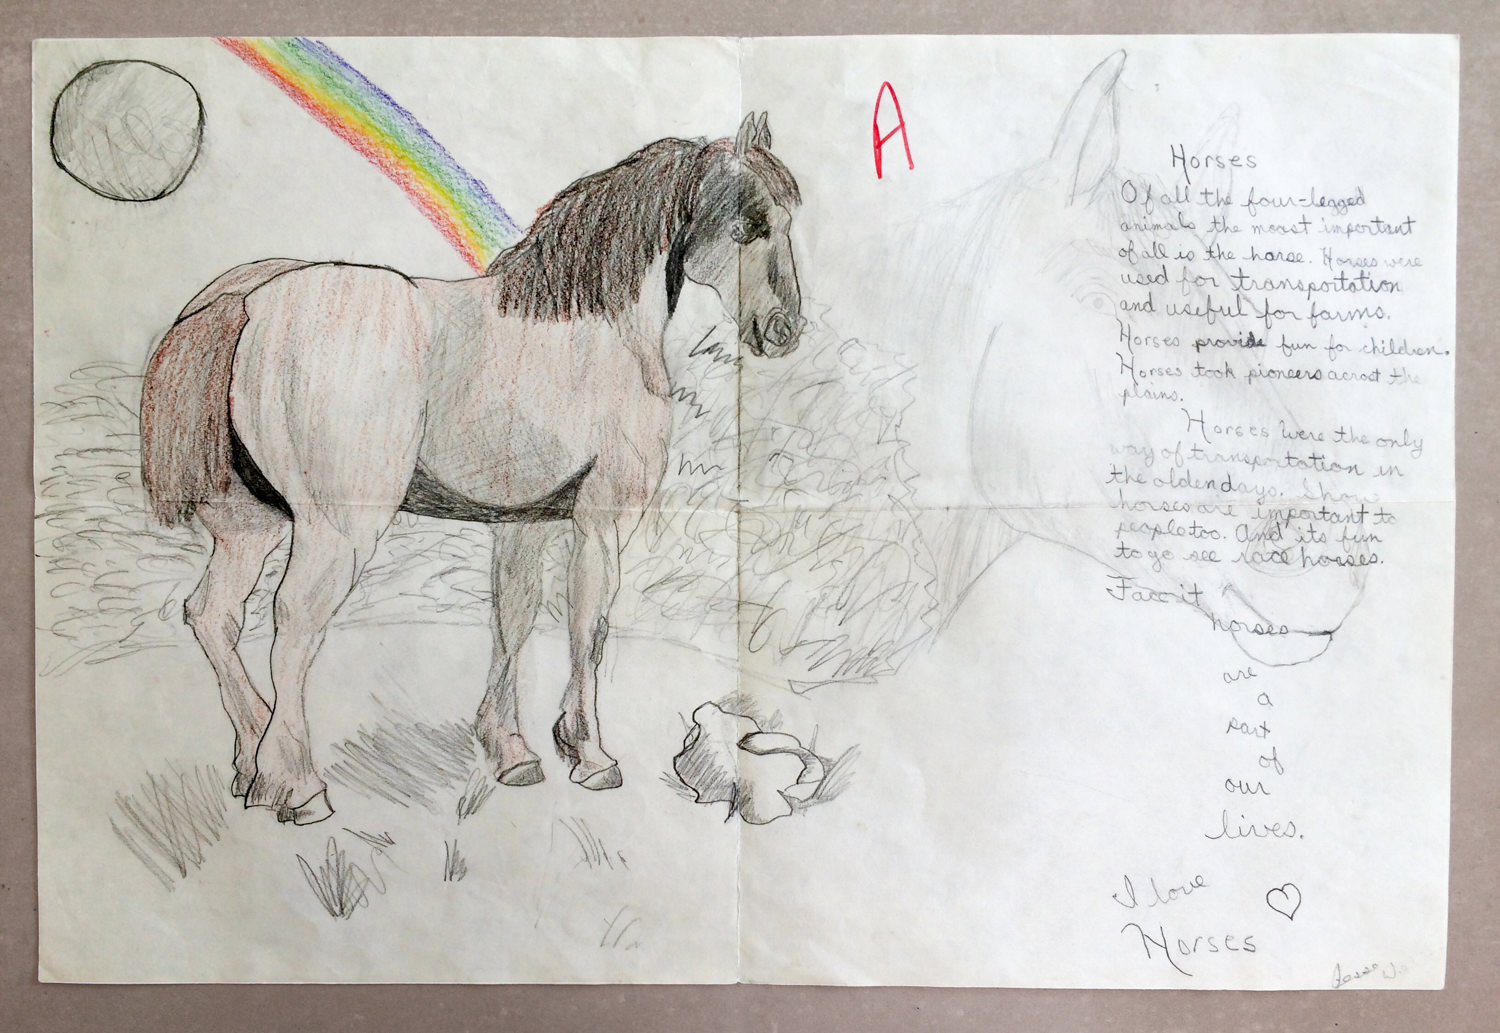 A
Horses
Of all the four-legged
animals the moast important
of all is the horse. Horses were
used for transportation
and useful for farms.
Horses provide fun for children.
Horses took pioneers acrost the
plains.
Horses were the only
way of transportation in
the olden days. Show
horses are important to
people too. And its fun
to go see race horses.
Faverit
horses
are
a
part
of
our
lives.
I love
Horses